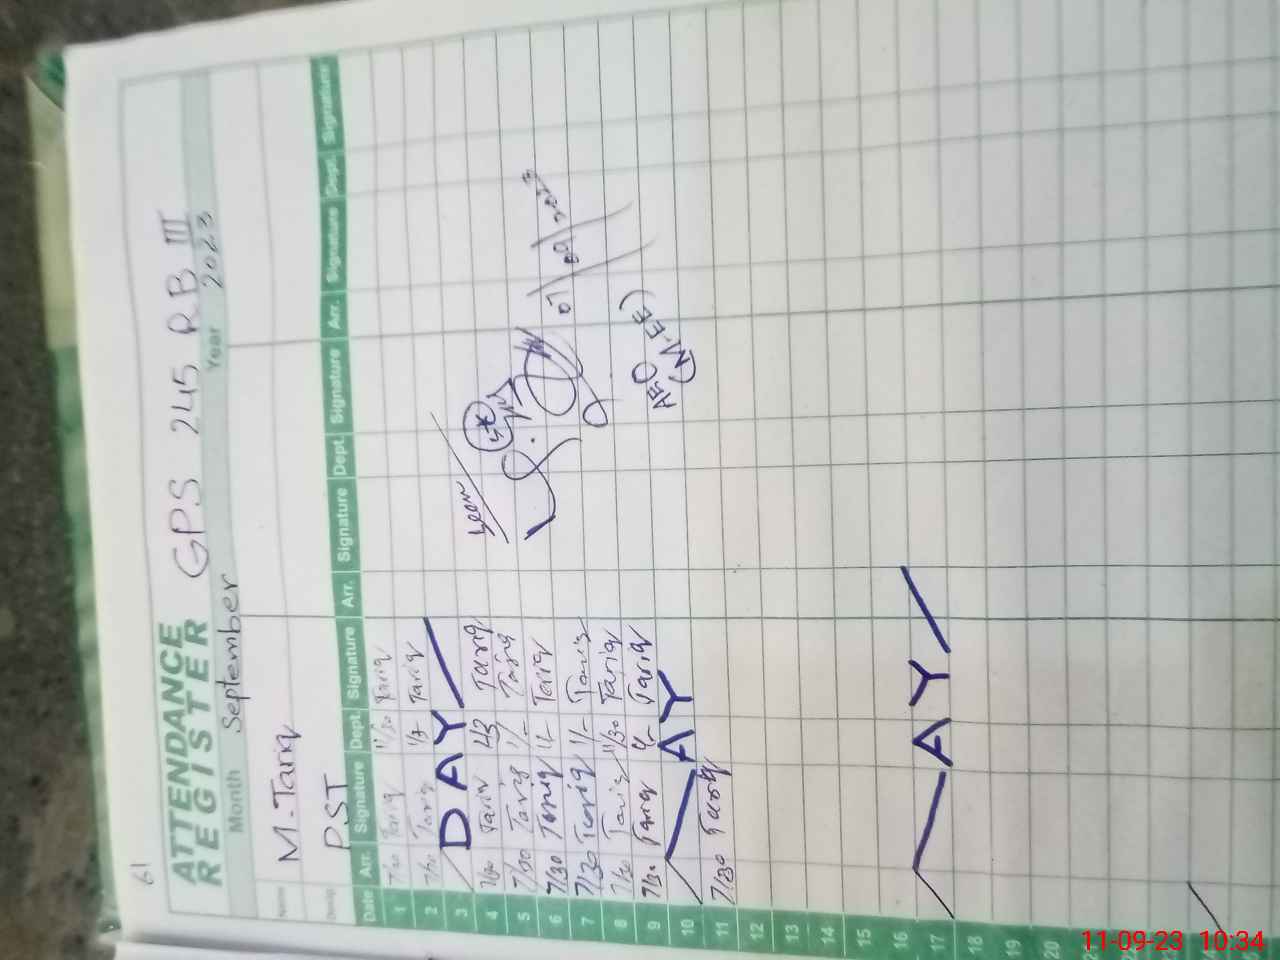 61
ATTENDANCE
REGISTER GPS 245 RB III
Month September Year 2023
Name M.Tariq
Desig PST
Date Arr. Signature Dept. Signature Arr. Signature Dept. Signature Arr. Signature Dept. Signature
1 7/30 Tariq 11/30 Tariq
2 7/30 Tariq Tariq
3 DAY
4 7/30 Tariq Tariq
5 7/30 Tariq Tariq
6 7/30 Tariq Tariq
7 7/30 Tariq Tariq
8 7/30 Tariq 11/30 Tariq
9 7/30 Tariq Tariq
10 AY
11 7/30 Tariq
12
13
14
15
16
17 AY
18
19
20
21
24
25
Seen
AEO
(M-EE)
11-09-23 10:34